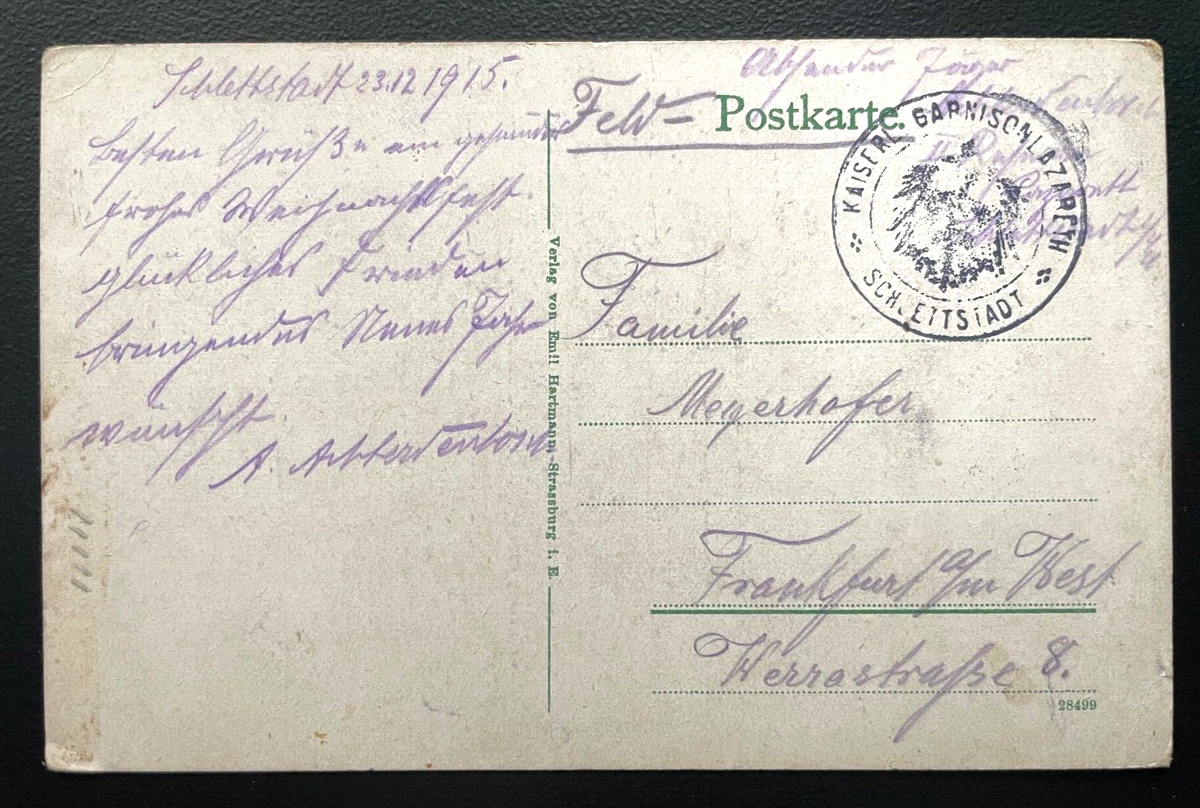 Schlettstadt 23.12.1915.
Besten Grüße ein gesundes
frohes Weihnachtsfest
glückliches Frieden
bringendes Neues Jahr
wünscht
A.
Verlag von Emil Hartmann, Strassburg i. E.
Absender Jäger
Feld-Postkarte.
II
Lazarett
KAISERL. GARNISONLAZARETH
SCHLETTSTADT
Familie
Meyerhofer
Frankfurt a/m West
Werrastraße 8.
28499